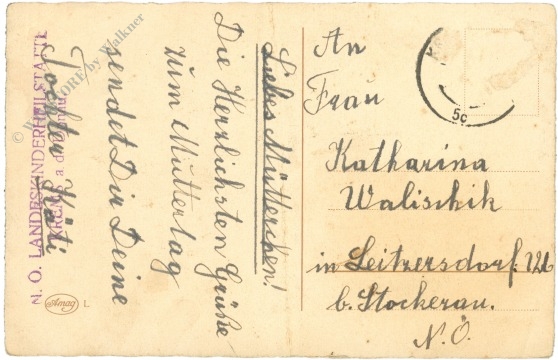 Liebes Mütterchen!
Die Herzlichsten Grüße
zum Muttertag
sendet Dir Deine
Tochter Käti
N. O. LANDESKINDERHEILSTÄTTE
a. d.
Amag
L
An
Frau
Katharina
Walischik
in Leitzersdorf: 126
b. Stockerau.
N.Ö.
5c
by Walkner